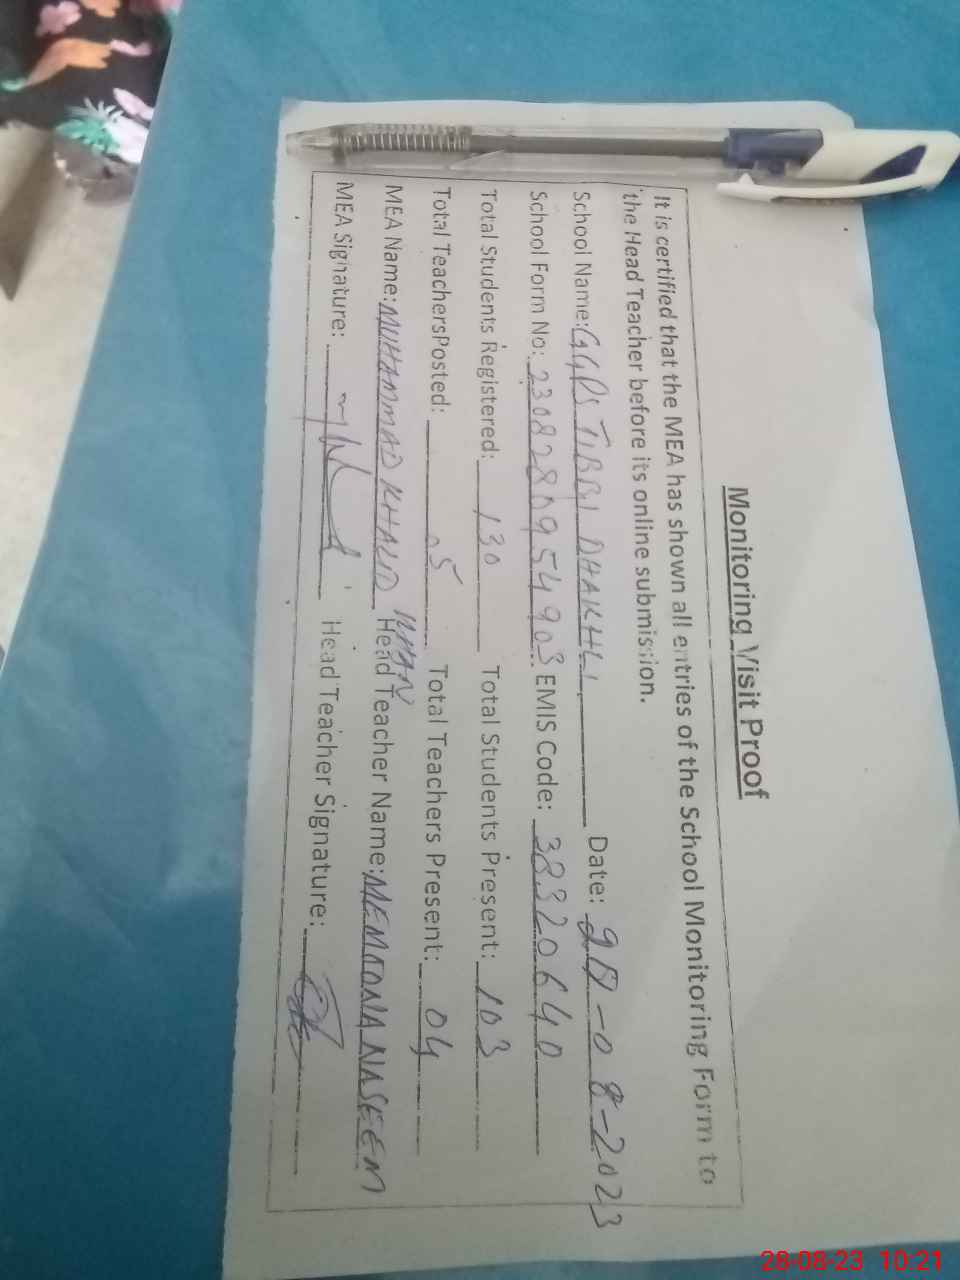 Monitoring Visit Proof
It is certified that the MEA has shown all entries of the School Monitoring Form to
the Head Teacher before its online submission.
School Name: GGPS TIBBI DHAKHLI Date: 28-08-2023
School Form No: 2308288954903 EMIS Code: 38320640
Total Students Registered: 130 Total Students Present: 103
Total TeachersPosted: 05 Total Teachers Present: 04
MEA Name: MUHAMMAD KHALID KHAN Head Teacher Name: MEMOONA NASEEM
MEA Signature: Head Teacher Signature:
28-08-23 10:21